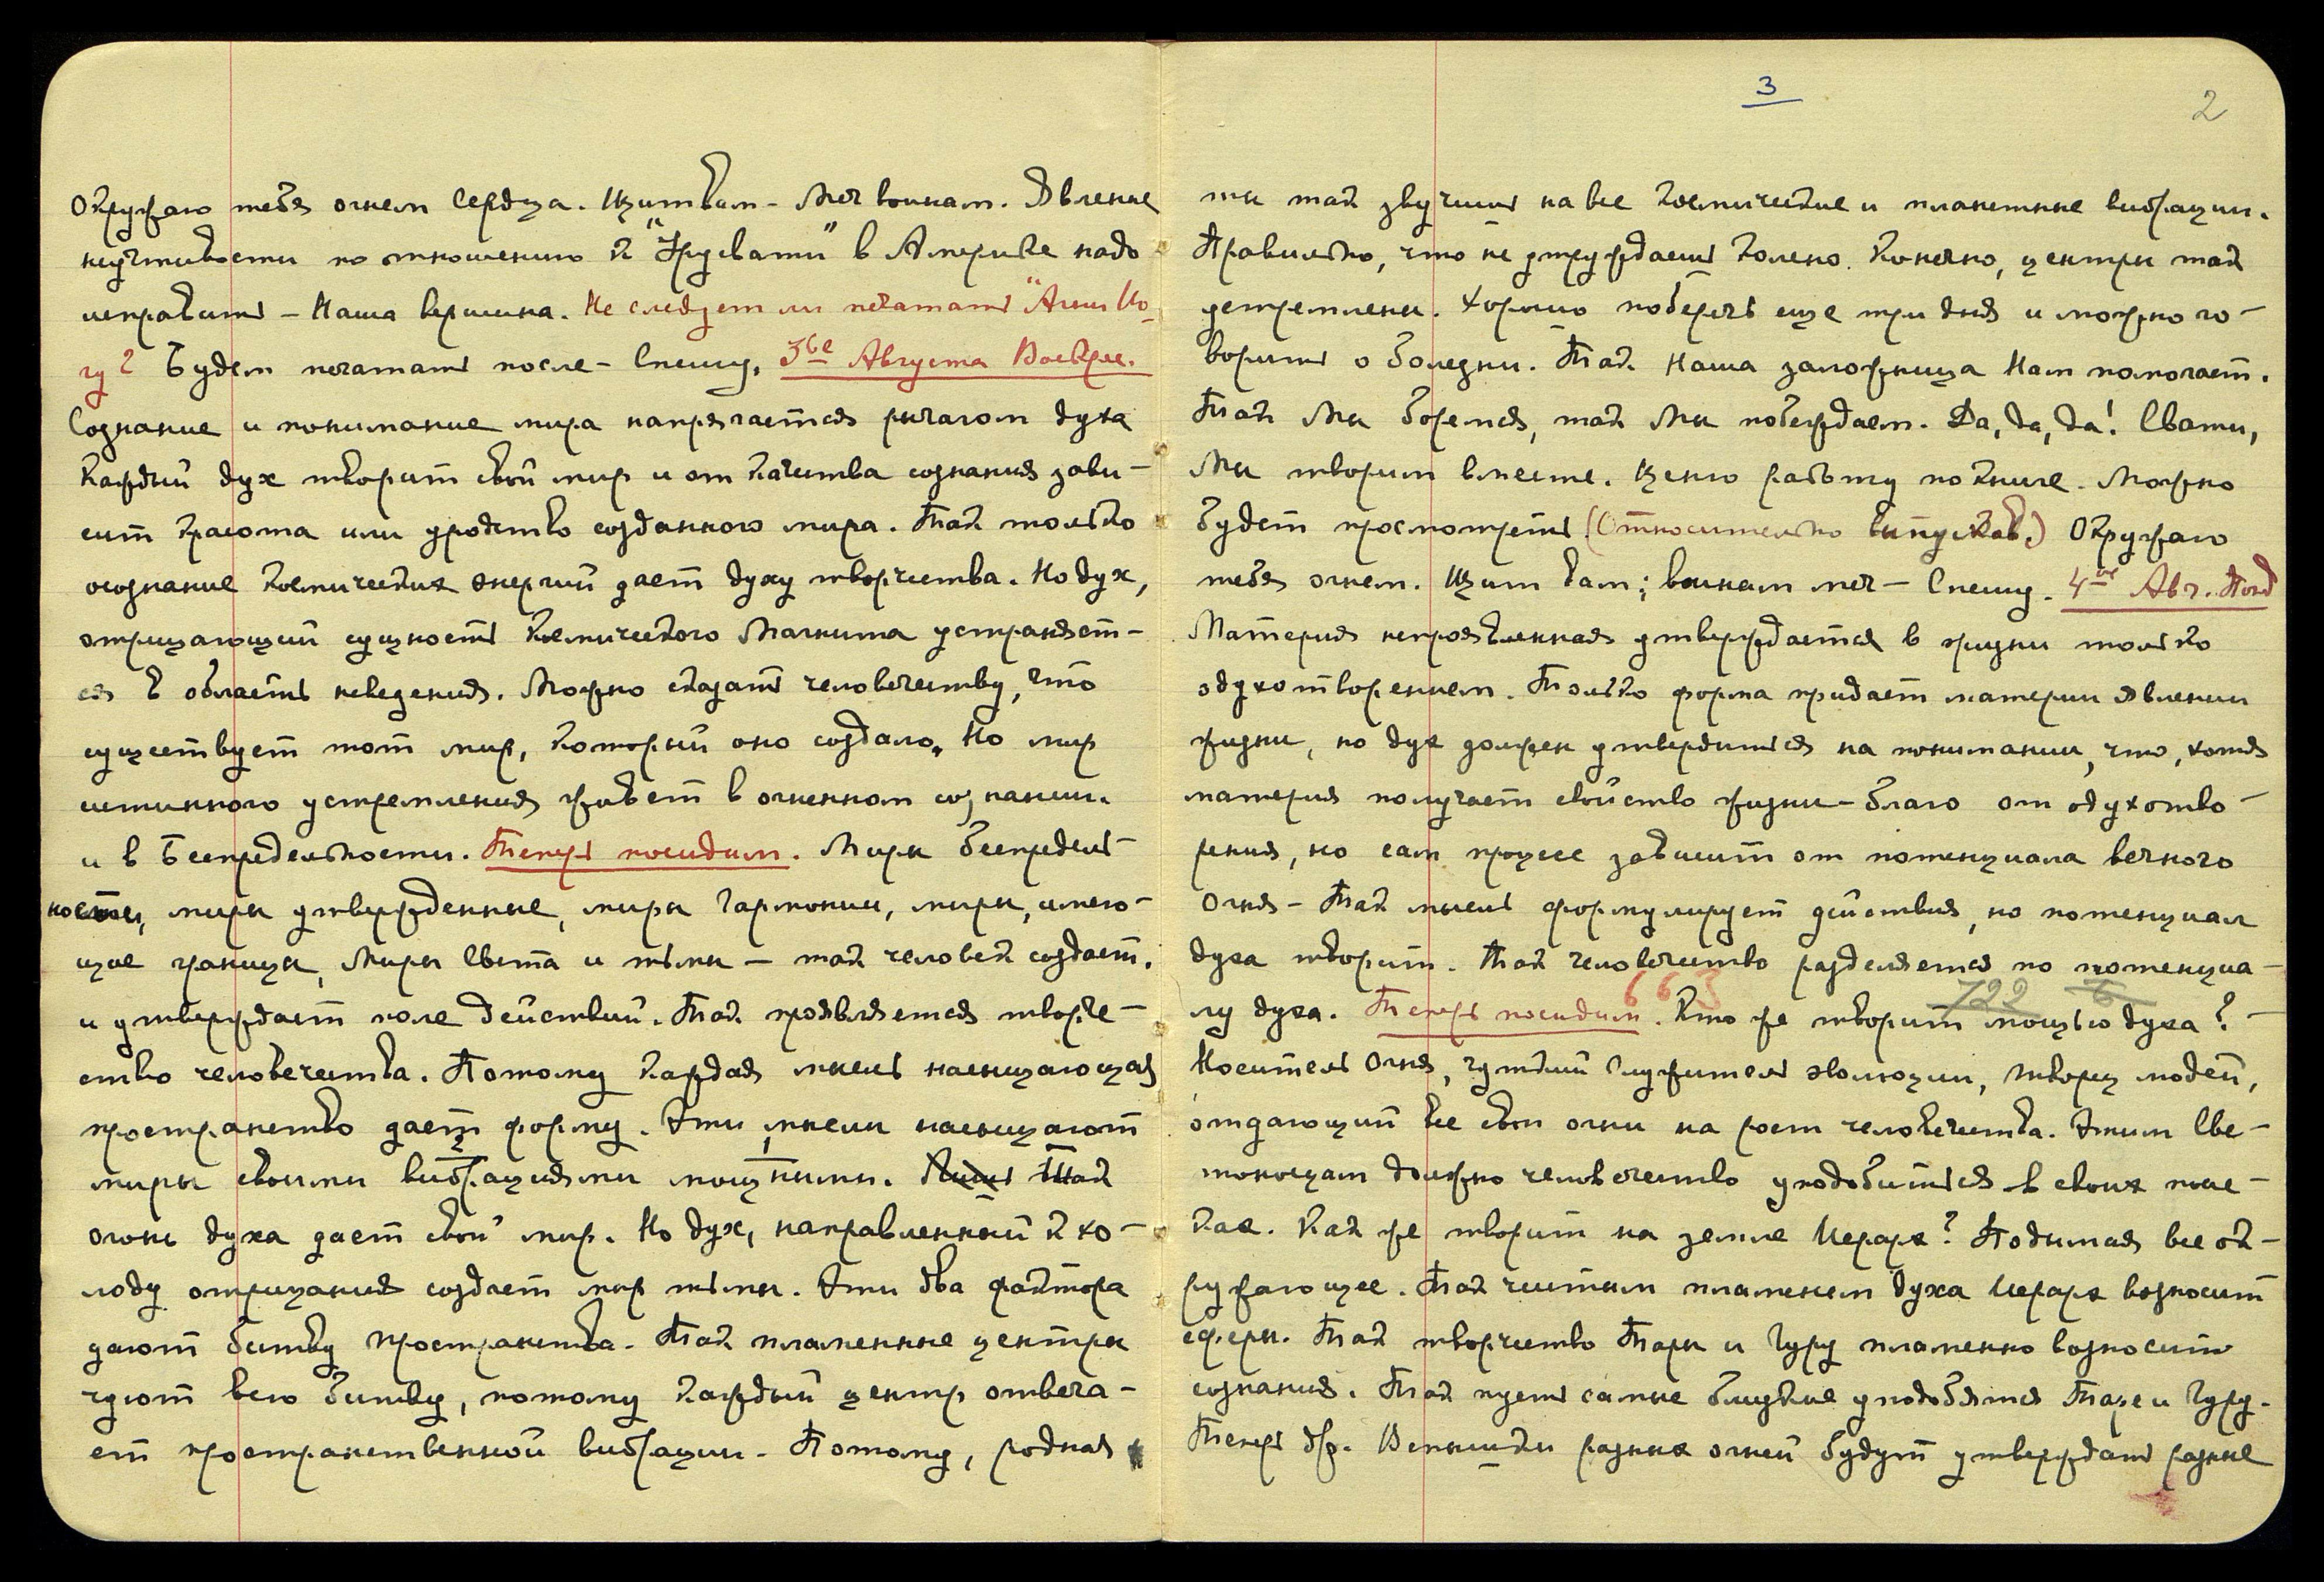 Окружаю тебя огнем Сердца. Щит вам - Меч воинам. Явление
неучтивости по отношению к "Урусвати" в Америке надо
исправить - Наша вершина. Не следует ли печатать "Агни Йо-
гу? Будем печатать после - Спешу. 3ье Августа Воскрес.
Сознание и понимание мира напрягается рычагом духа
каждый дух творит свой мир и от качества сознания зави-
сит красота или уродство созданного мира. Так только
осознание космических энергий дает духу творчества. Но дух,
отрицающий сущность Космического Магнита устраняет-
ся в область неведения. Можно сказать человечеству, что
существует тот мир, который оно создало. Но мир
истинного устремления живет в огненном сознании.
и в Беспредельности. Теперь посидим. Миры беспредель-
ности, миры утвержденные, миры Гармонии, миры, имею-
щие границы, Миры Света и тьмы - так человек создает.
и утверждает поле действий. Так проявляется творче-
ство человечества. Потому каждая мысль насыщающая
пространство дает форму. Эти мысли насыщают
миры своими вибрациями мощными. Так
огонь духа дает свой мир. Но дух, направленный к хо-
лоду отрицания создает мир тьмы. Эти два фактора
дают битву пространства. Так пламенные центры
чуют всю битву, потому каждый центр отвеча-
ет пространственной вибрации. Потому, родная
3
2
ты так звучишь на все космические и планетные вибрации.
Правильно, что не утруждаешь колено. Конечно, центры так
устремлены. Хорошо поберечь еще три дня и можно го-
ворить о болезни. Так Наша заложница Нам помогает.
Так Мы боремся, так Мы побеждаем. Да, да, да! Свати,
Мы творим вместе. Ценю работу по книге. Можно
будет просмотреть (Относительно выпусков.) Окружаю
тебя огнем. Щит вам; воинам меч - Спешу. 4ое Авг. Понд
Материя непроявленная утверждается в жизни только
одухотворением. Только форма придает материи явлении
жизни, но дух должен утвердиться на понимании, что, хотя
материя получает свойство жизни - благо от одухотво-
рения, но сам процесс зависит от потенциала вечного
Огня - Так мысль формулирует действия, но потенциал
духа творит. Так человечество разделяется по потенциа-
663 722
лу духа. Теперь посидим. Кто же творит мощью духа? -
Носитель Огня, чуткий Служитель эволюции, творец людей,
отдающий все свои огни на рост человечества. Этим Све-
тоносцам должно человечество уподобиться в своих поис-
ках. Как же творит на земле Иерарх? Подымая все ок-
ружающее. Так чистым пламенем духа Иерарх возносит
сферы. Так творчество Тары и Гуру пламенно возносит
сознания. Так пусть самые близкие уподобятся Таре и Гуру.
Теперь др. Вспышки разных огней будут утверждать разные